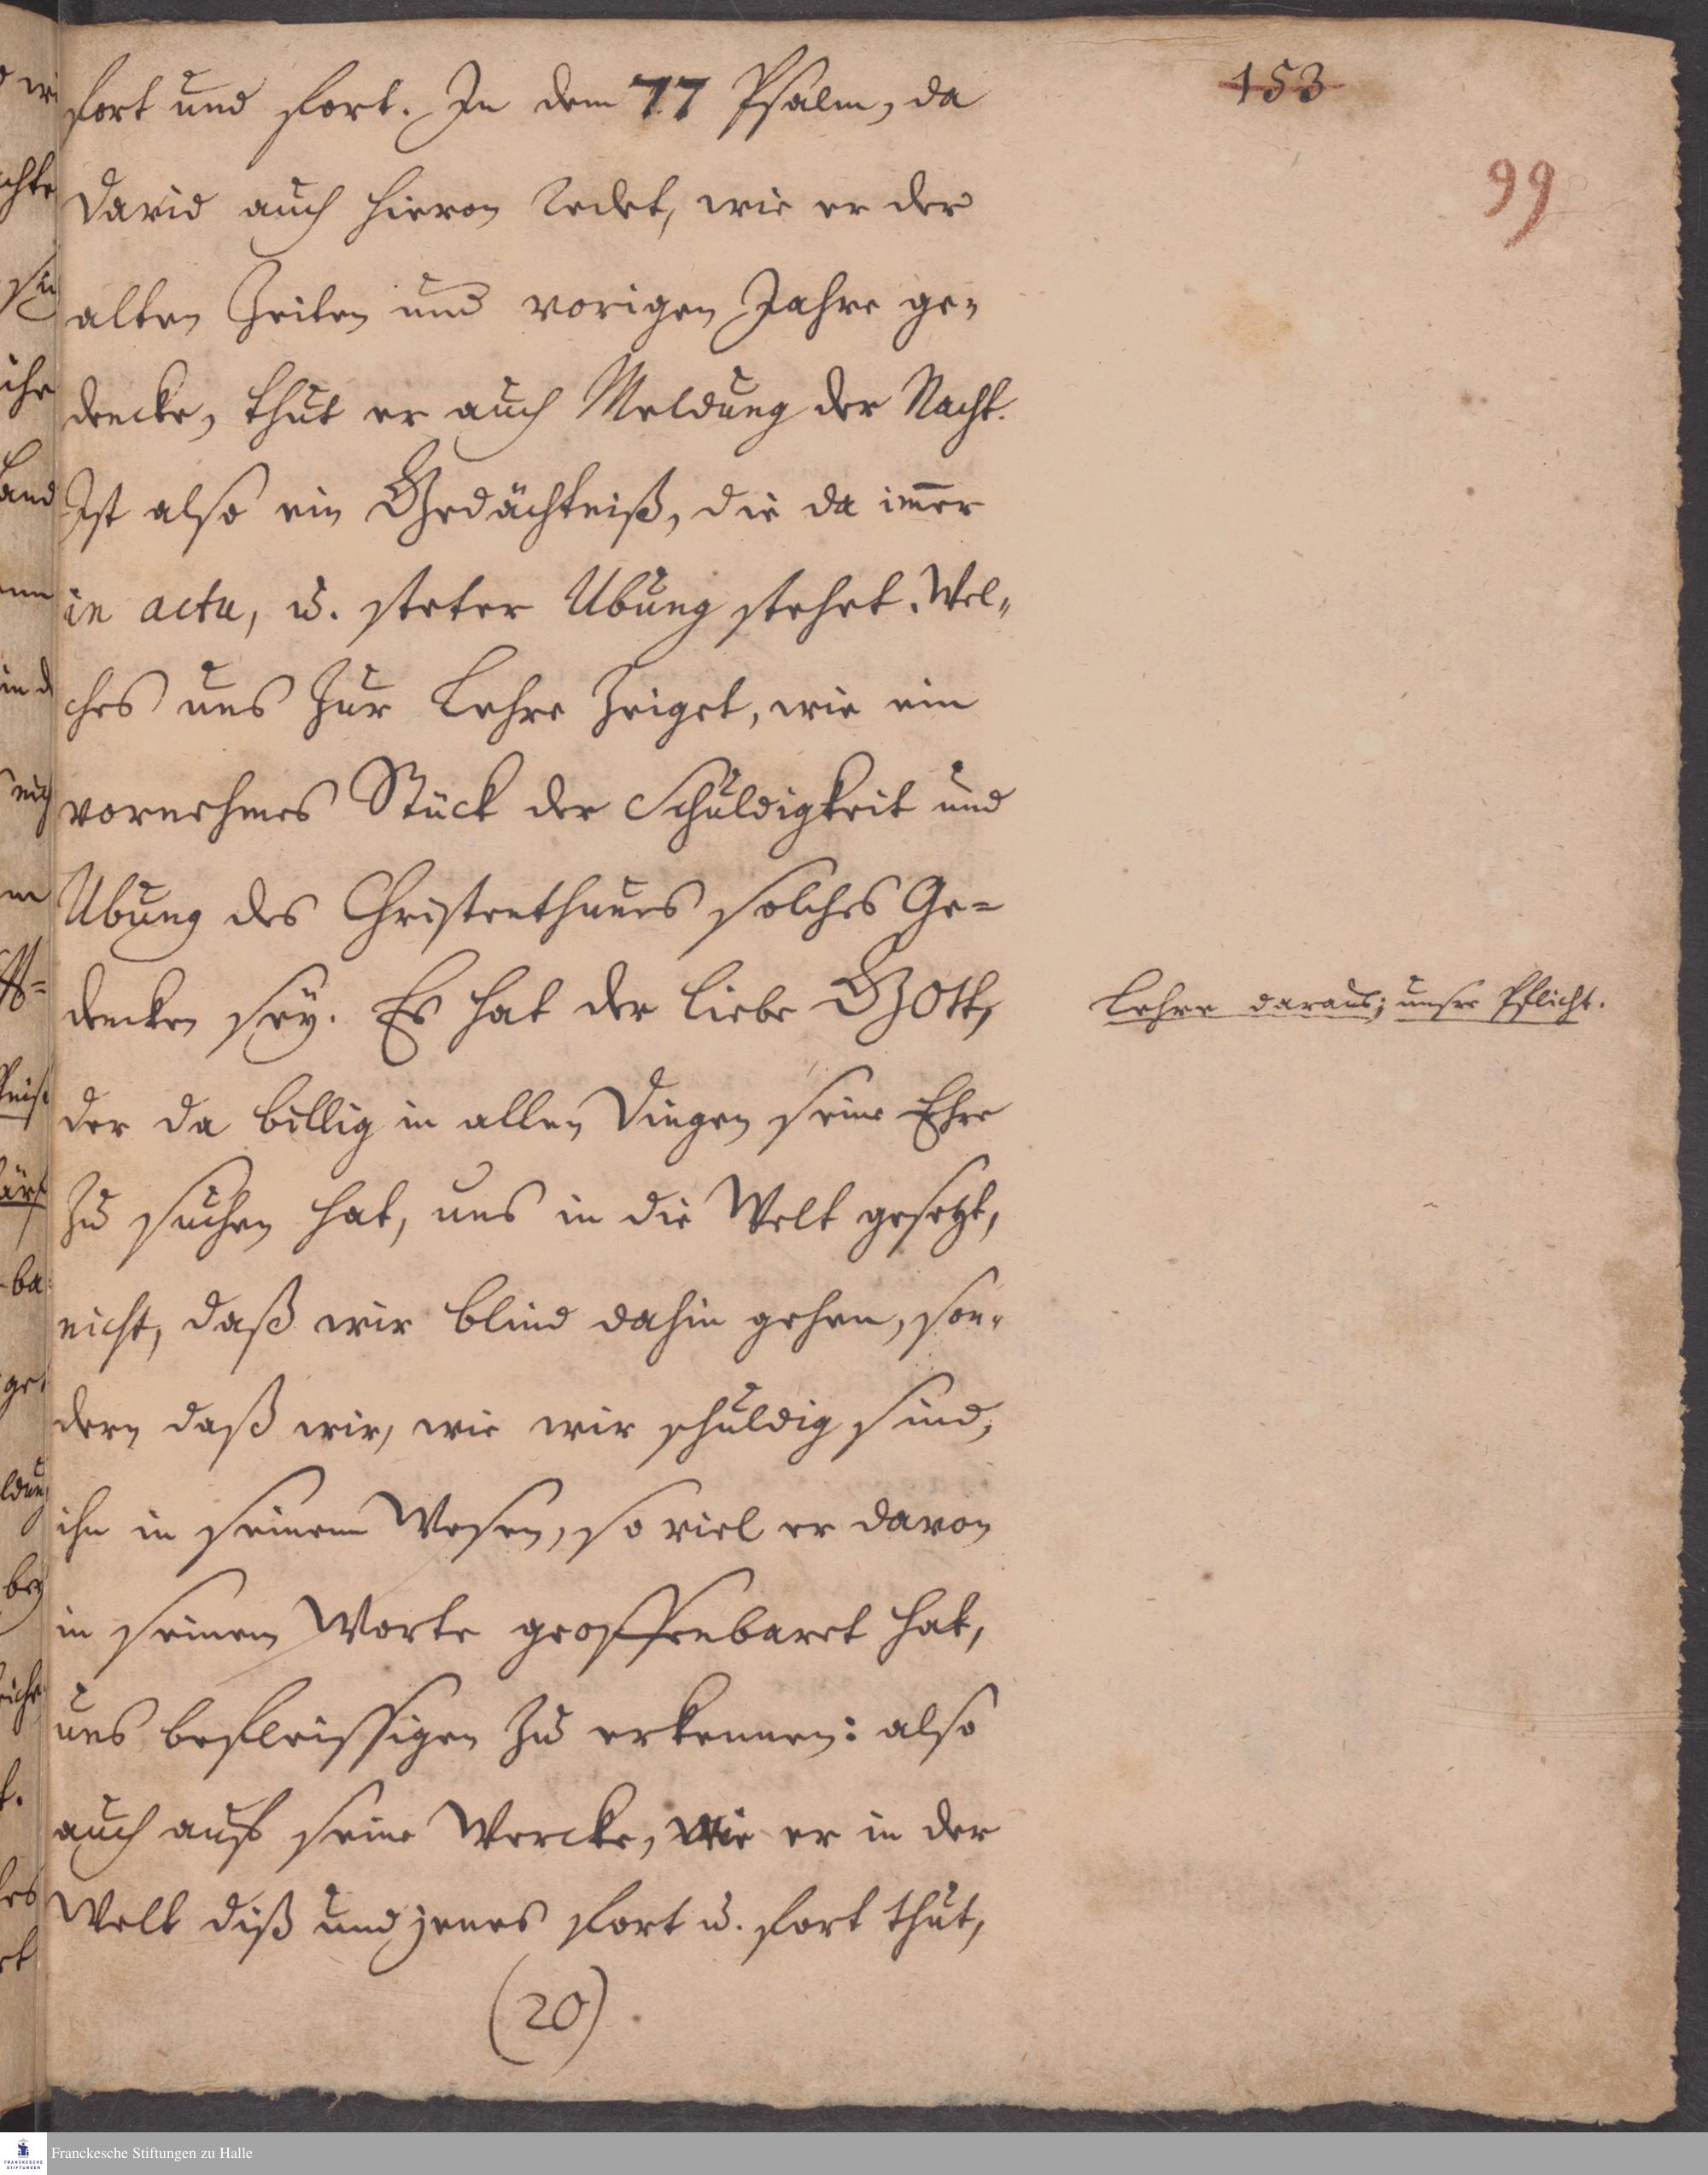 153
99
fort und fort. In dem 77 Psalm, da
David auch hievon redet, wie er der
alten Zeiten und vorigen Jahre ge-
dencke, thut er auch Meldung der Nacht.
Ist also ein Gedächtniß, die da im̅er
in actu, u. steter Ubung stehet. Wel-
ches uns zur Lehre zeiget, wie ein
vornehmes Stück der Schuldigkeit und
Ubung des Christenthums solches Ge-
dencken sey. Es hat der liebe GOtt,
Lehre daraus; unsre Pflicht.
der da billig in allen Dingen seine Ehre
zu suchen hat, uns in die Welt gesetzt,
nicht, daß wir blind dahin gehen, son-
dern daß wir, wie wir schuldig sind,
ihn in seinem Wesen, so viel er davon
in seinem Worte geoffenbaret hat,
uns befleissigen zu erkennen: also
auch auf seine Wercke, wie er in der
Welt diß und jenes fort u. fort thut,
(20)
Franckesche Stiftungen zu Halle